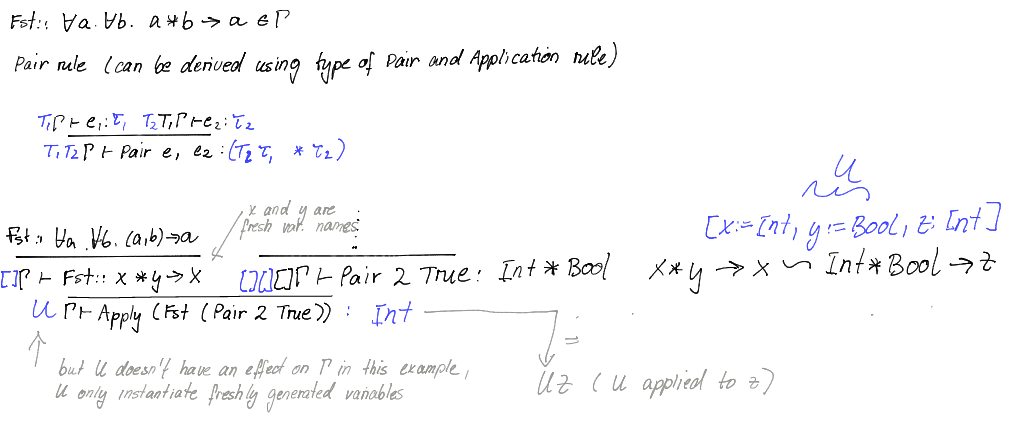 Fst:: ∀a. ∀b. a * b → a ∈ Γ
Pair rule (can be derived using type of Pair and Application rule)
T₁Γ ⊢ e₁: τ₁ T₂T₁Γ ⊢ e₂: τ₂
T₁T₂Γ ⊢ Pair e₁ e₂: (T₂τ₁ * τ₂)
x and y are
fresh var. names
U
[x:=Int, y:=Bool, z: Int]
Fst:: ∀a. ∀b. (a,b)→a
[]Γ ⊢ Fst:: x * y → x [][][]Γ ⊢ Pair 2 True: Int * Bool x*y → x ~ Int*Bool → z
U Γ ⊢ Apply (Fst (Pair 2 True)) : Int
=
but U doesn't have an effect on Γ in this example,
U only instantiate freshly generated variables
Uz (U applied to z)